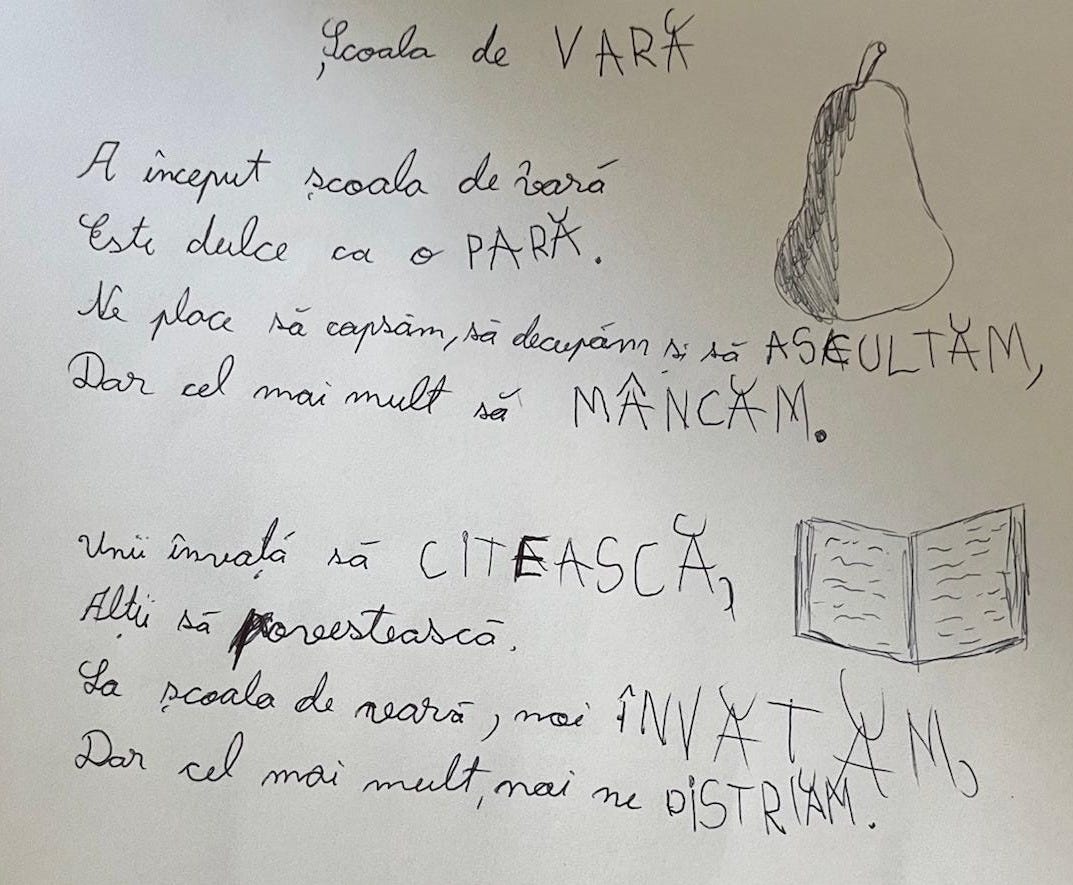 Școala de VARĂ
A început școala de vară
Este dulce ca o PARĂ.
Ne place să capsăm, să decupăm și să ASCULTĂM,
Dar cel mai mult să MÂNCĂM.
Unii învață să CITEASCĂ,
Alții să povestească.
La școala de vară, noi ÎNVĂTĂM,
Dar cel mai mult, noi ne DISTRĂM.